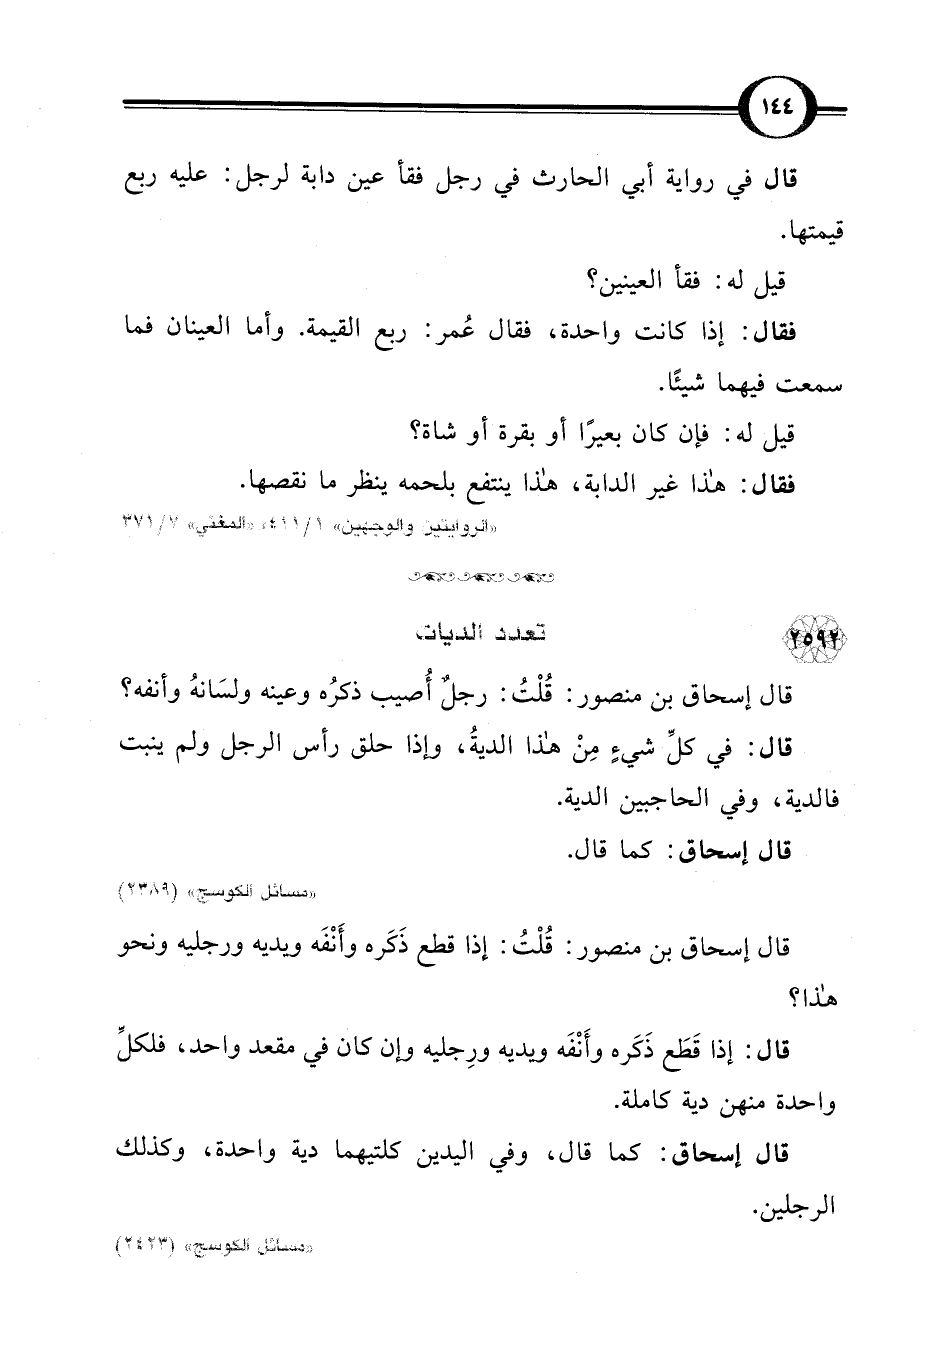 ١٤٤
قال في رواية أبي الحارث في رجل فقأ عين دابة لرجل: عليه ربع
قيمتها.
قيل له: فقأ العينين؟
فقال: إذا كانت واحدة، فقال عُمر: ربع القيمة. وأما العينان فما
سمعت فيهما شيئًا.
قيل له: فإن كان بعيرًا أو بقرة أو شاة؟
فقال: هذا غير الدابة، هذا ينتفع بلحمه ينظر ما نقصها.
«الروايتين والوجهين» ٤١١/١، «المغني» ٣٧١/٧
٢٥٩٢
تعدد الديات
قال إسحاق بن منصور: قُلْتُ: رجلٌ أُصيب ذكرُه وعينه ولسَانهُ وأنفه؟
قال: في كلِّ شيءٍ مِنْ هذا الديةُ، وإذا حلق رأس الرجل ولم ينبت
فالدية، وفي الحاجبين الدية.
قال إسحاق: كما قال.
«مسائل الكوسج» (٢٣٨٩)
قال إسحاق بن منصور: قُلْتُ: إذا قطع ذَكَره وأَنْفَه ويديه ورجليه ونحو
هذا؟
قال: إذا قَطَع ذَكَره وأَنْفَه ويديه ورِجليه وإن كان في مقعد واحد، فلكلِّ
واحدة منهن دية كاملة.
قال إسحاق: كما قال، وفي اليدين كلتيهما دية واحدة، وكذلك
الرجلين.
«مسائل الكوسج» (٢٤٢٣)